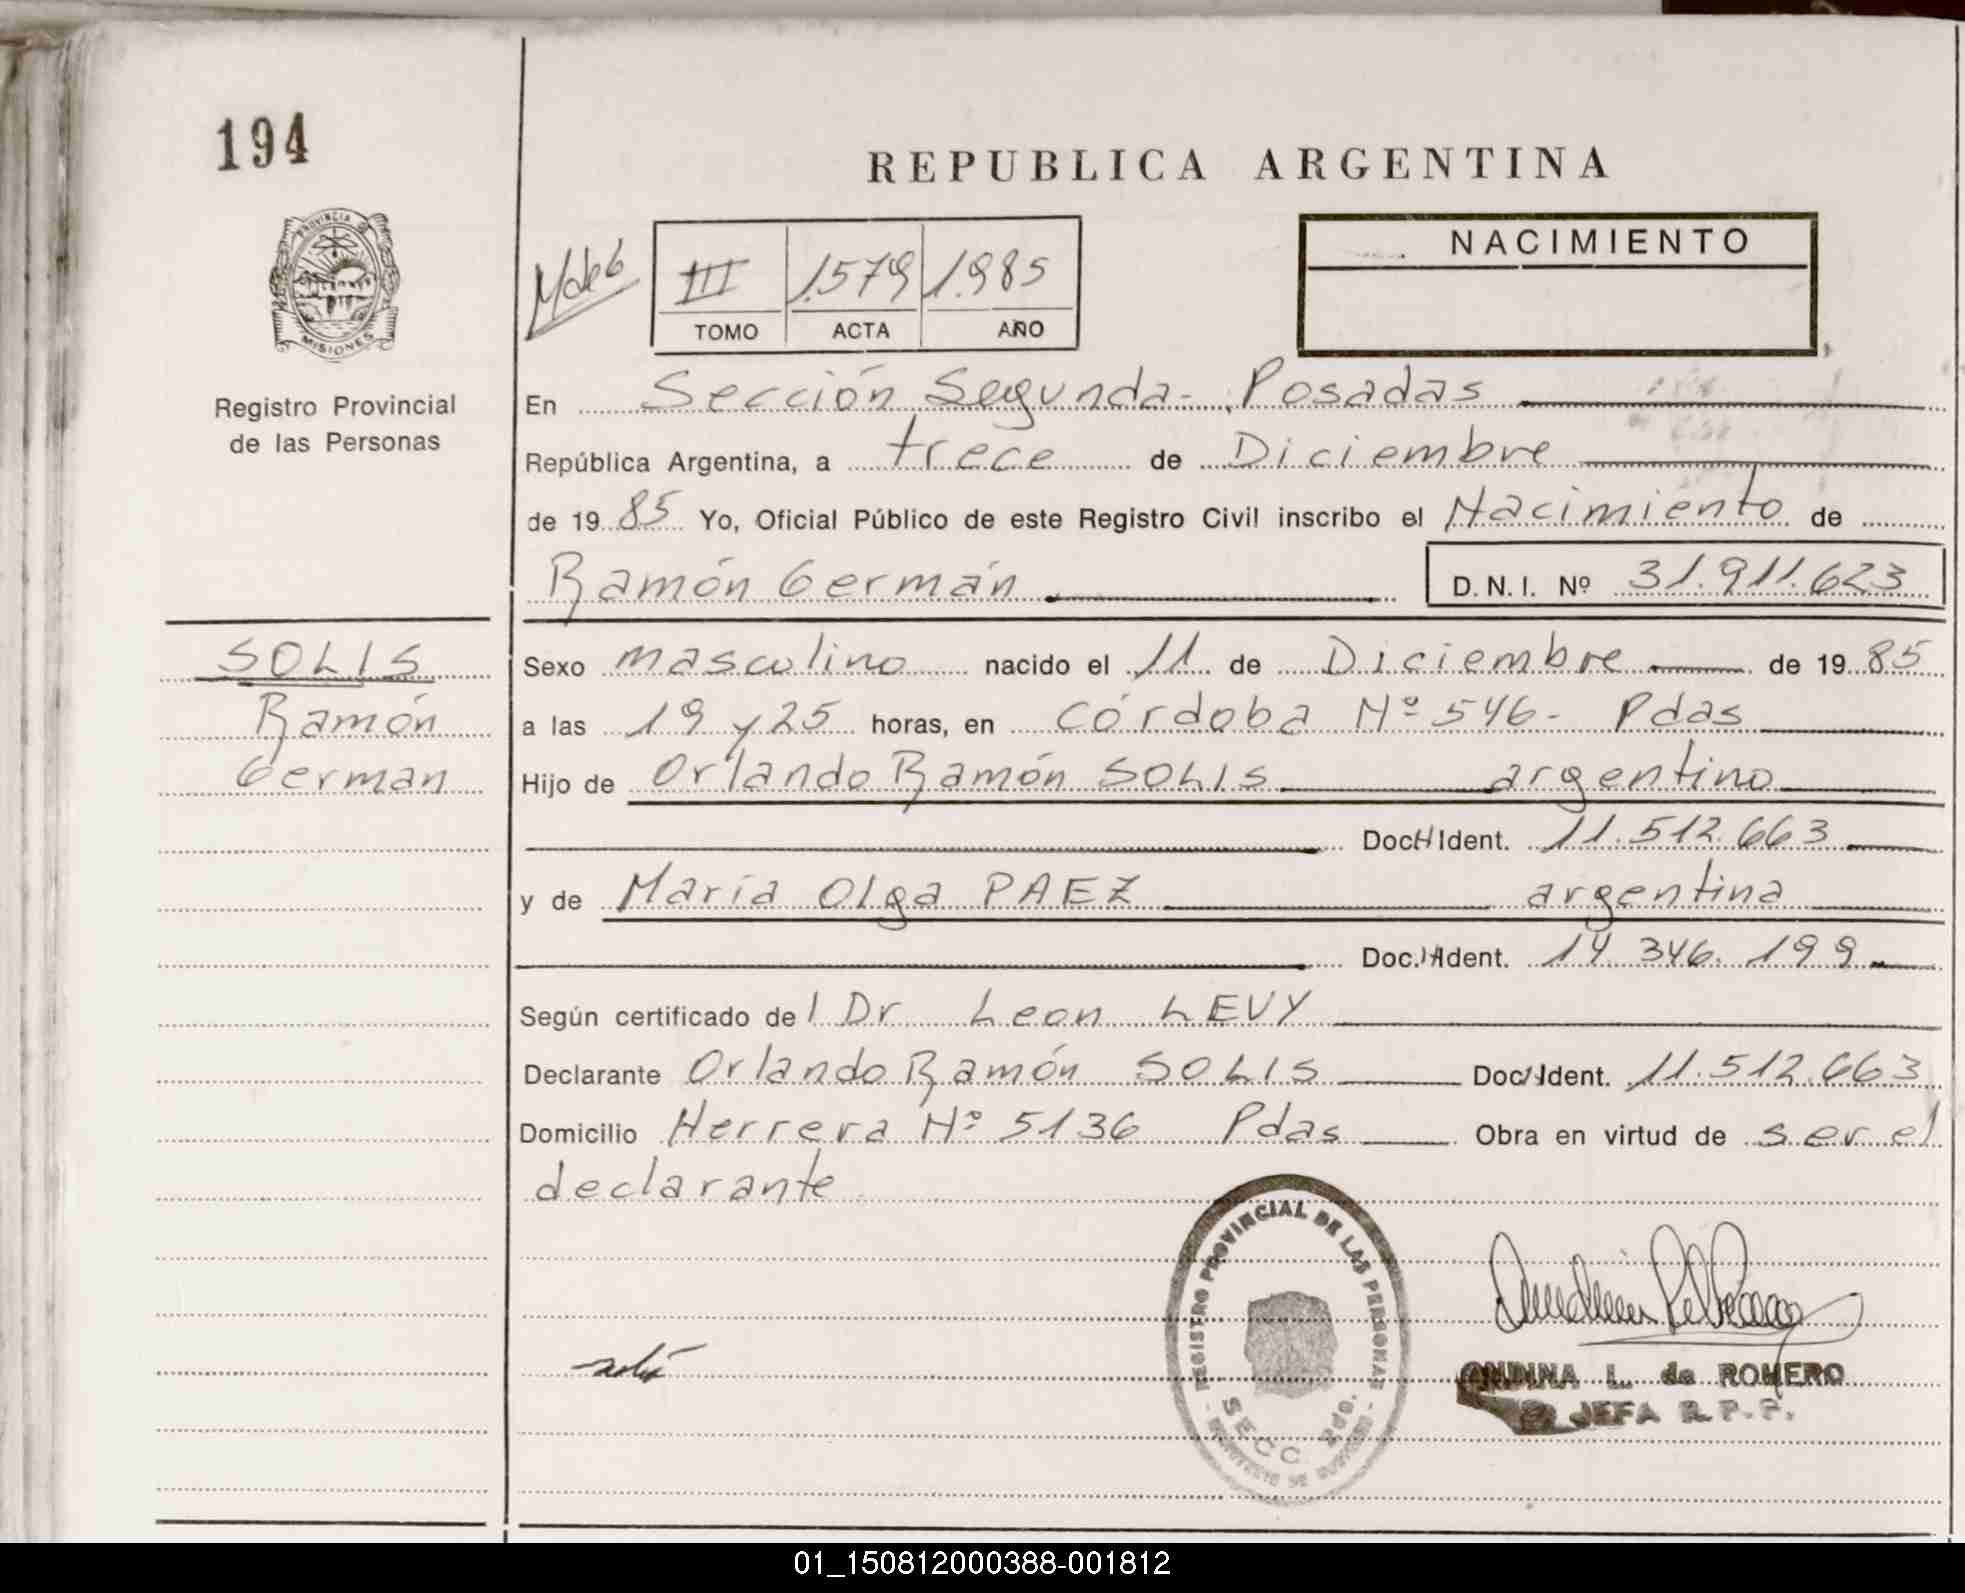 194
REPUBLICA ARGENTINA
PROVINCIA
MISIONES
Registro Provincial
de las Personas
III 1.579 1.985
TOMO ACTA AÑO
NACIMIENTO
En Sección Segunda - Posadas
República Argentina, a trece de Diciembre
de 19 85 Yo, Oficial Público de este Registro Civil inscribo el Nacimiento de
Ramón Germán D.N.I. Nº 31.911.623
SOLIS
Ramón
German
Sexo masculino nacido el 11 de Diciembre de 19 85
a las 19 y 25 horas, en Córdoba Nº 546- Pdas
Hijo de Orlando Ramón SOLIS argentino
Doc. Ident. 11.512.663
y de María Olga PAEZ argentina
Doc. Ident. 14.346.199
Según certificado del Dr Leon LEVY
Declarante Orlando Ramón SOLIS Doc. Ident. 11.512.663
Domicilio Herrera Nº 5136 Pdas Obra en virtud de ser el
declarante
REGISTRO PROVINCIAL DE LAS PERSONAS
SECC. 2da.
L. de ROMERO
JEFA R.P.P.
01_150812000388-001812